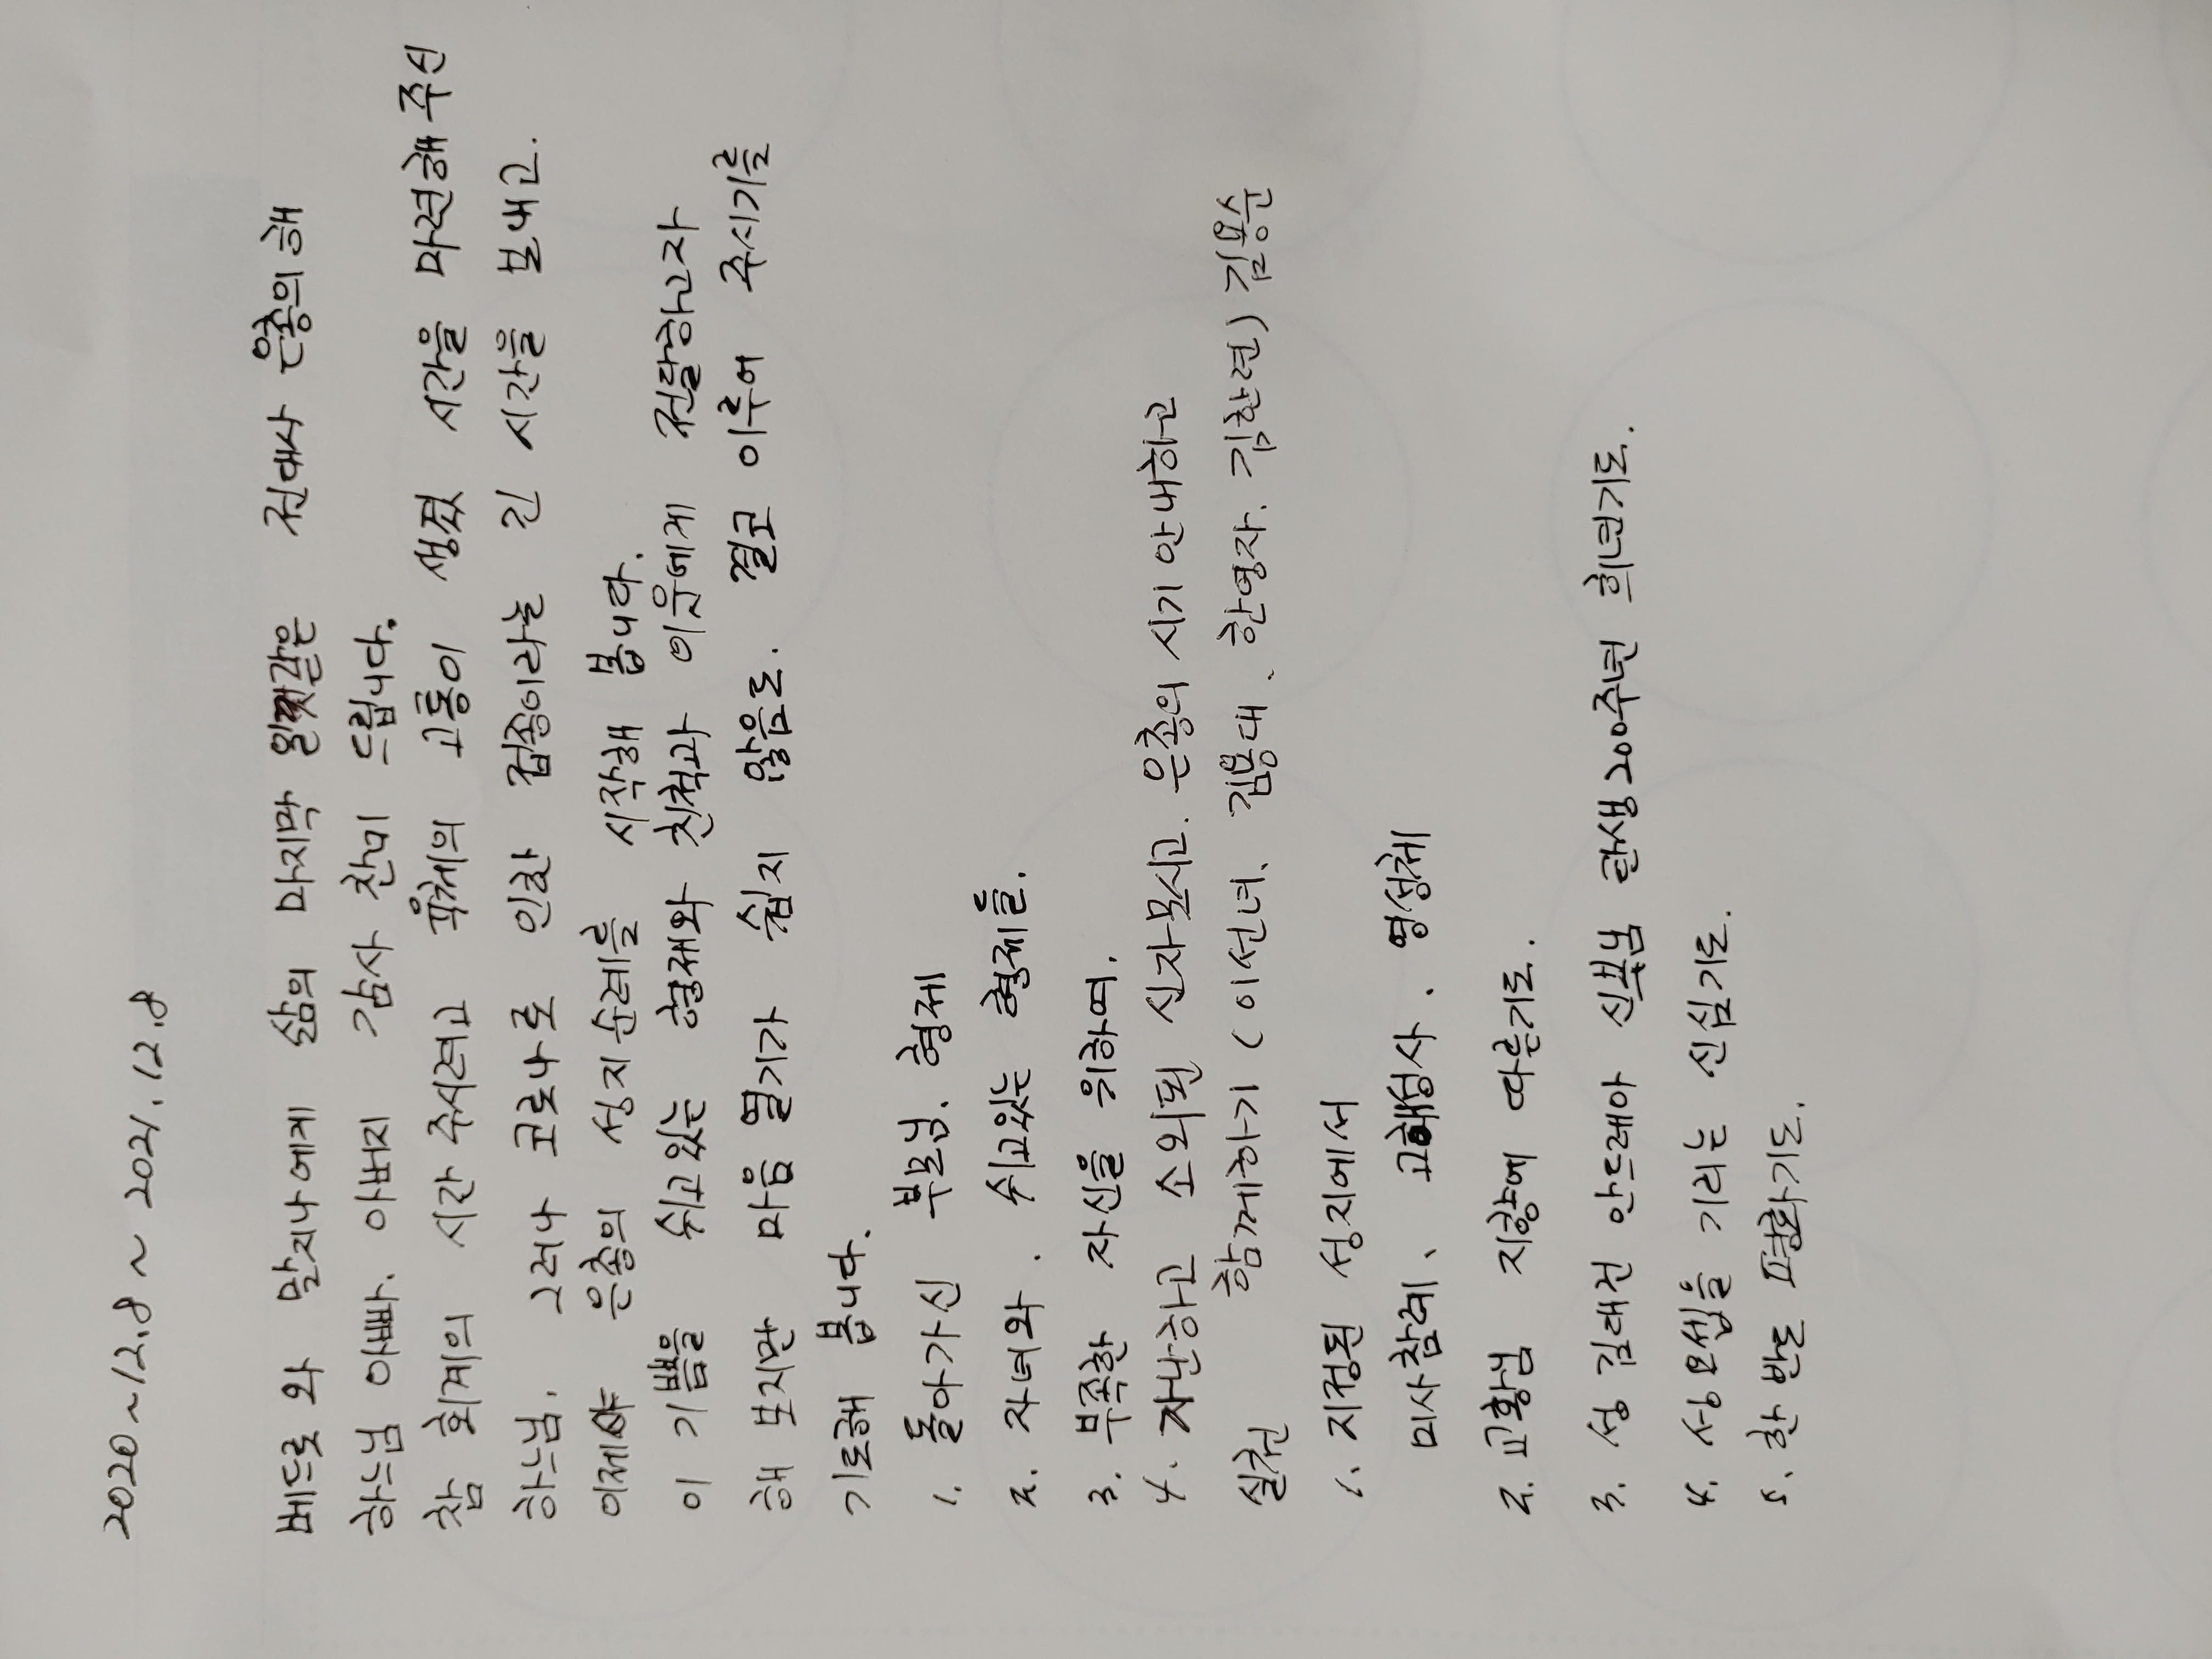 2020~12.8 ~ 2021.12.8
베드로 와 말지나에게 삶의 마지막 같은 전대사 은총의해
하느님 아빠. 아버지 감사 찬미 드립니다.
참 회계의 시간 주시려고 육체의 고통이 생겼 시간을 마련해 주신
하느님. 그러나 코로나로 인한 겁증이라는 긴 시간을 보내고.
이제야 은총의 성지순례를 시작해 봅니다.
이 기쁨을 쉬고있는 형제와 친척과 이웃에게 전달하고자
해 보지만 마음 열기가 쉽지 않음도. 결코 이루어 주시기를
기도해 봅니다.
1. 돌아가신 부모님. 형제
2. 자녀와. 쉬고있는 형제들.
3. 부족한 자신을 위하여.
4. 가난하고 소외된 신자모시고. 은총의 시기 안내하고
함께하기 (이선녀. 김용대. 한영자. 김찬련) 김용순
실천
1. 지정된 성지에서
미사참례、고해성사、영성체
2. 교황님 지향에 따른기도.
3. 성 김대건 안드레아 신부님 탄생200주년 희년기도.
4. 성요셉을 기리는 신심기도.
5. 한반도 평화기도.